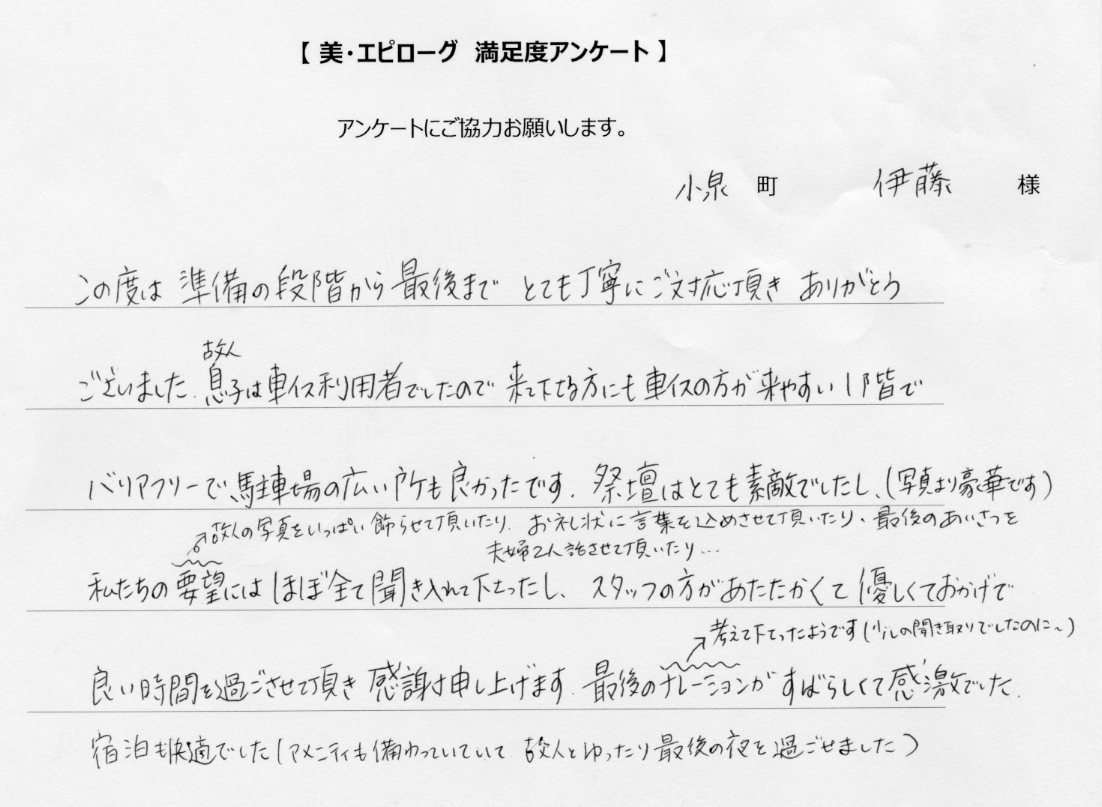 【 美・エピローグ 満足度アンケート 】
アンケートにご協力お願いします。
小泉 町 伊藤 様
この度は 準備の段階から 最後まで とても丁寧にご対応頂き ありがとう
故人
ございました。息子は車イス利用者でしたので 来て下さる方にも車イスの方が来やすい1階で
バリアフリーで、駐車場の広い所も良かったです。祭壇はとても素敵でしたし、(写真より豪華です)
故人の写真をいっぱい飾らせて頂いたり、お礼状に言葉を込めさせて頂いたり、最後のあいさつを
夫婦2人話させて頂いたり…
私たちの要望にはほぼ全て聞き入れて下さったし、スタッフの方があたたかくて優しくておかげで
考えて下さったようです(少しの聞き取りでしたのに〜)
良い時間を過ごさせて頂き 感謝申し上げます。最後のナレーションがすばらしくて感激でした。
宿泊も快適でした(アメニティも備わっていていて 故人とゆったり最後の夜を過ごせました)